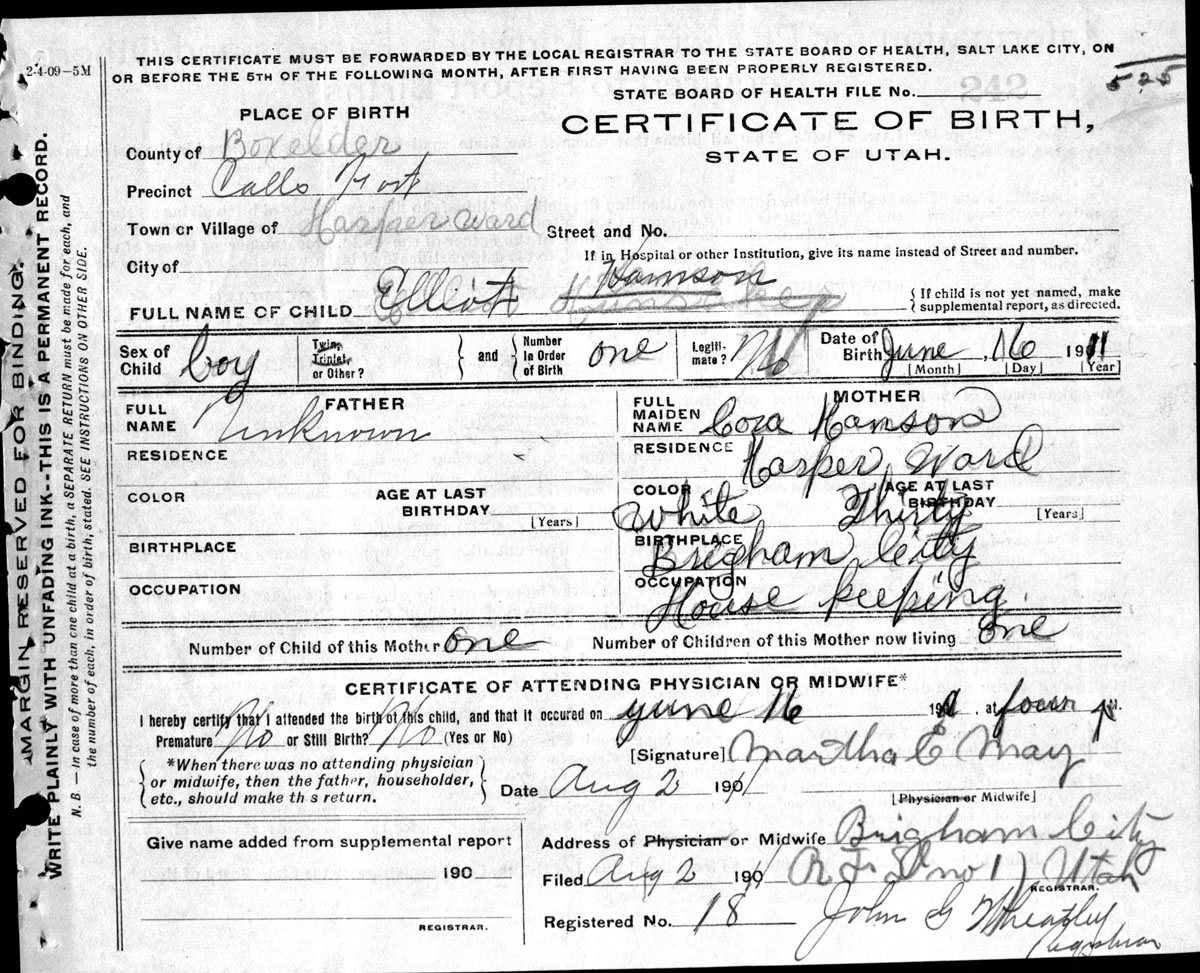 THIS CERTIFICATE MUST BE FORWARDED BY THE LOCAL REGISTRAR TO THE STATE BOARD OF HEALTH, SALT LAKE CITY, ON
2-4-09—5M
OR BEFORE THE 5TH OF THE FOLLOWING MONTH, AFTER FIRST HAVING BEEN PROPERLY REGISTERED.
STATE BOARD OF HEALTH FILE No.
525
PLACE OF BIRTH
CERTIFICATE OF BIRTH,
STATE OF UTAH.
County of Boxelder
Precinct Calls Fort
Town or Village of Harper Ward
Street and No.
If in Hospital or other Institution, give its name instead of Street and number.
City of
FULL NAME OF CHILD Elliot Hamson Hunsaker
{ If child is not yet named, make
supplemental report, as directed.
Sex of Child boy
Twin, Triplet, or Other?
and
Number In Order of Birth one
Legitimate? No
Date of Birth June 16 1911
[Month] [Day] [Year]
FATHER
FULL NAME Unknown
RESIDENCE
COLOR
AGE AT LAST BIRTHDAY [Years]
BIRTHPLACE
OCCUPATION
MOTHER
FULL MAIDEN NAME Cora Hamson
RESIDENCE Harper Ward
COLOR White
AGE AT LAST BIRTHDAY Thirty [Years]
BIRTHPLACE Brigham City
OCCUPATION House keeping.
Number of Child of this Mother one
Number of Children of this Mother now living one
CERTIFICATE OF ATTENDING PHYSICIAN OR MIDWIFE*
I hereby certify that I attended the birth of this child, and that it occured on June 16 191 , at four M.
Premature? No or Still Birth? No (Yes or No)
*When there was no attending physician
or midwife, then the father, householder,
etc., should make th s return.
[Signature] Martha E May
Date Aug 2 1901
[Physician or Midwife]
Give name added from supplemental report
190
REGISTRAR.
Address of Physician or Midwife Brigham City
R F D no 1 Utah
Filed Aug 2 1901
REGISTRAR.
Registered No. 18
John G Wheatley
Registrar
MARGIN RESERVED FOR BINDING.
WRITE PLAINLY WITH UNFADING INK--THIS IS A PERMANENT RECORD.
N. B. — In case of more than one child at birth, a SEPARATE RETURN must be made for each, and
the number of each, in order of birth, stated. SEE INSTRUCTIONS ON OTHER SIDE.